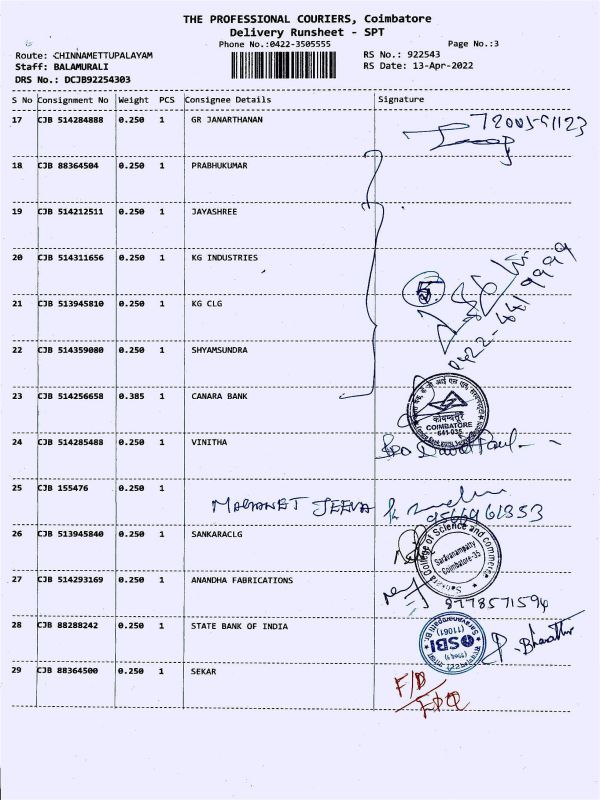 THE PROFESSIONAL COURIERS, Coimbatore
Delivery Runsheet - SPT
Phone No.:0422-3505555
Page No.:3
Route: CHINNAMETTUPALAYAM
RS No.: 922543
Staff: BALAMURALI
RS Date: 13-Apr-2022
DRS No.: DCJB92254303
S No Consignment No Weight PCS Consignee Details Signature
17 CJB 514284888 0.250 1 GR JANARTHANAN
18 CJB 88364504 0.250 1 PRABHUKUMAR
19 CJB 514212511 0.250 1 JAYASHREE
20 CJB 514311656 0.250 1 KG INDUSTRIES
21 CJB 513945810 0.250 1 KG CLG
22 CJB 514359080 0.250 1 SHYAMSUNDRA
23 CJB 514256658 0.385 1 CANARA BANK
COIMBATORE
641 035
24 CJB 514285488 0.250 1 VINITHA
25 CJB 155476 0.250 1
JEEVA
26 CJB 513945840 0.250 1 SANKARACLG
College of Science and Commerce
Saravanampatty
Coimbatore-35
27 CJB 514293169 0.250 1 ANANDHA FABRICATIONS
8778571594
28 CJB 88288242 0.250 1 STATE BANK OF INDIA
SBI
(11061)
29 CJB 88364500 0.250 1 SEKAR
F/D